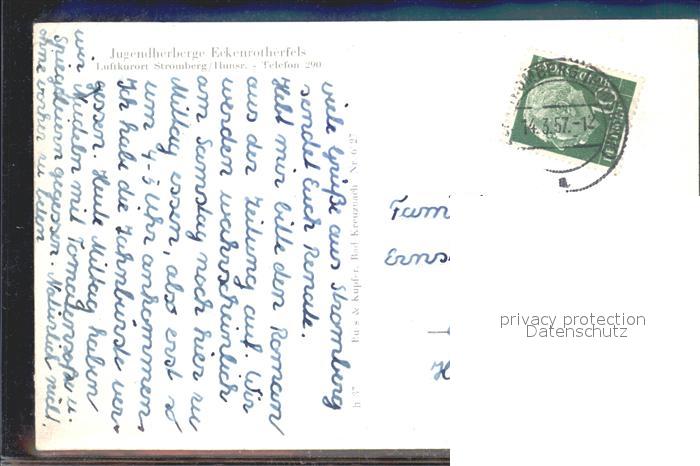 Jugendherberge Eckenrotherfels
Luftkurort Stromberg/Hunsr. - Telefon 290
viele Grüße aus Stromberg
sendet Euch Renate.
Hebt mir bitte den Roman
aus der Zeitung auf. Wir
werden wahrscheinlich
am Samstag noch hier zu
Mittag essen, also erst so
um 4-5 Uhr ankommen.
Ich habe die Zahnbürste ver-
gessen. Heute Mittag haben
wir Nudeln mit Tomatensoße u.
Spiegeleiern gegessen. Natürlich nicht
ohne vorher zu beten
& Kupfer, Bad Kreuznach Nr. 6 27
14.3.57.-12
Fam
Erns
H
privacy protection
Datenschutz